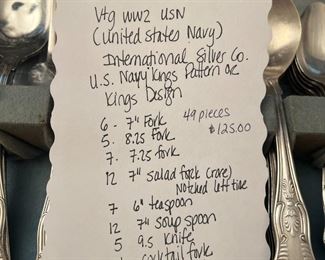 Vtg WW2 USN
(United States Navy)
International Silver Co.
U.S. Navy Kings Pattern or
Kings Design
49 pieces
$125.00
6 - 7" Fork
5 - 8.25 Fork
7 - 7.25 fork
12 7" Salad fork (rare)
Notched left tine
7 6" teaspoon
12 7" soup spoon
5 9.5 Knife
cocktail fork